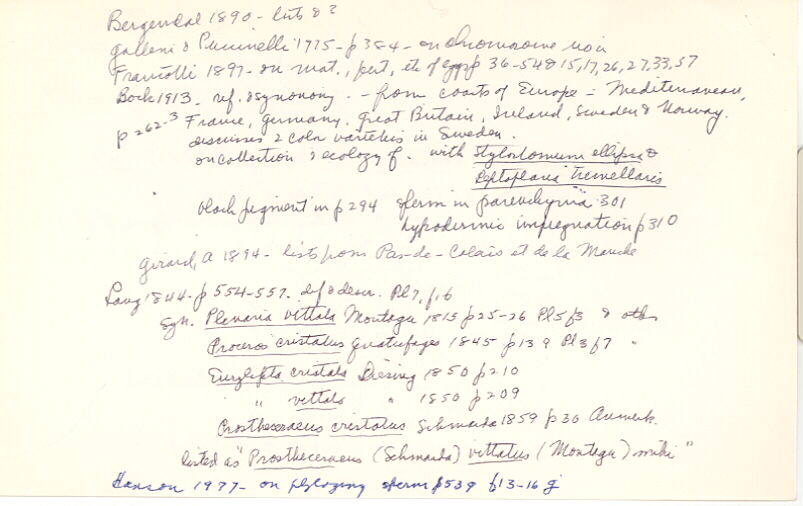 Bergendal 1890 - lists 83
Galleni & Puccinelli 1975 - p 384 - on chromosome no in
Francotti 1897 - on mat., fert, etc of eggs p 36-54 & 15, 17, 26, 27, 33, 57
Bock 1913 - ref. & synonomy - from coasts of Europe - Mediterranean,
p 262-3 France, Germany, Great Britain, Ireland, Sweden & Norway.
discusses 2 color varieties in Sweden.
on collection & ecology of. with Stylostomum ellipse &
Leptoplana tremellaris
black pigment in p 294 sperm in parenchyma 301
hypodermic impregnation p 310
Girard, A 1894 - lists from Pas-de-Calais et de la Manche
Lang 1844 - p 554-557. def & descr. Pl 7, f. 6
Syn. Planaria vittata Montagu 1815 p 25-26 Pl 5 f 3 & others
Proceros cristatus Quatrefages 1845 p 139 Pl 3 f 7 "
Eurylepta cristata Diesing 1850 p 210
" vittata " 1850 p 209
Prostheceraeus cristatus Schmarda 1859 p 30 Anmerk.
listed as "Prostheceraeus (Schmarda) vittatus (Montagu) mihi"
Hanson 1977 - on phylogeny sperm p 539 f 13-16 g